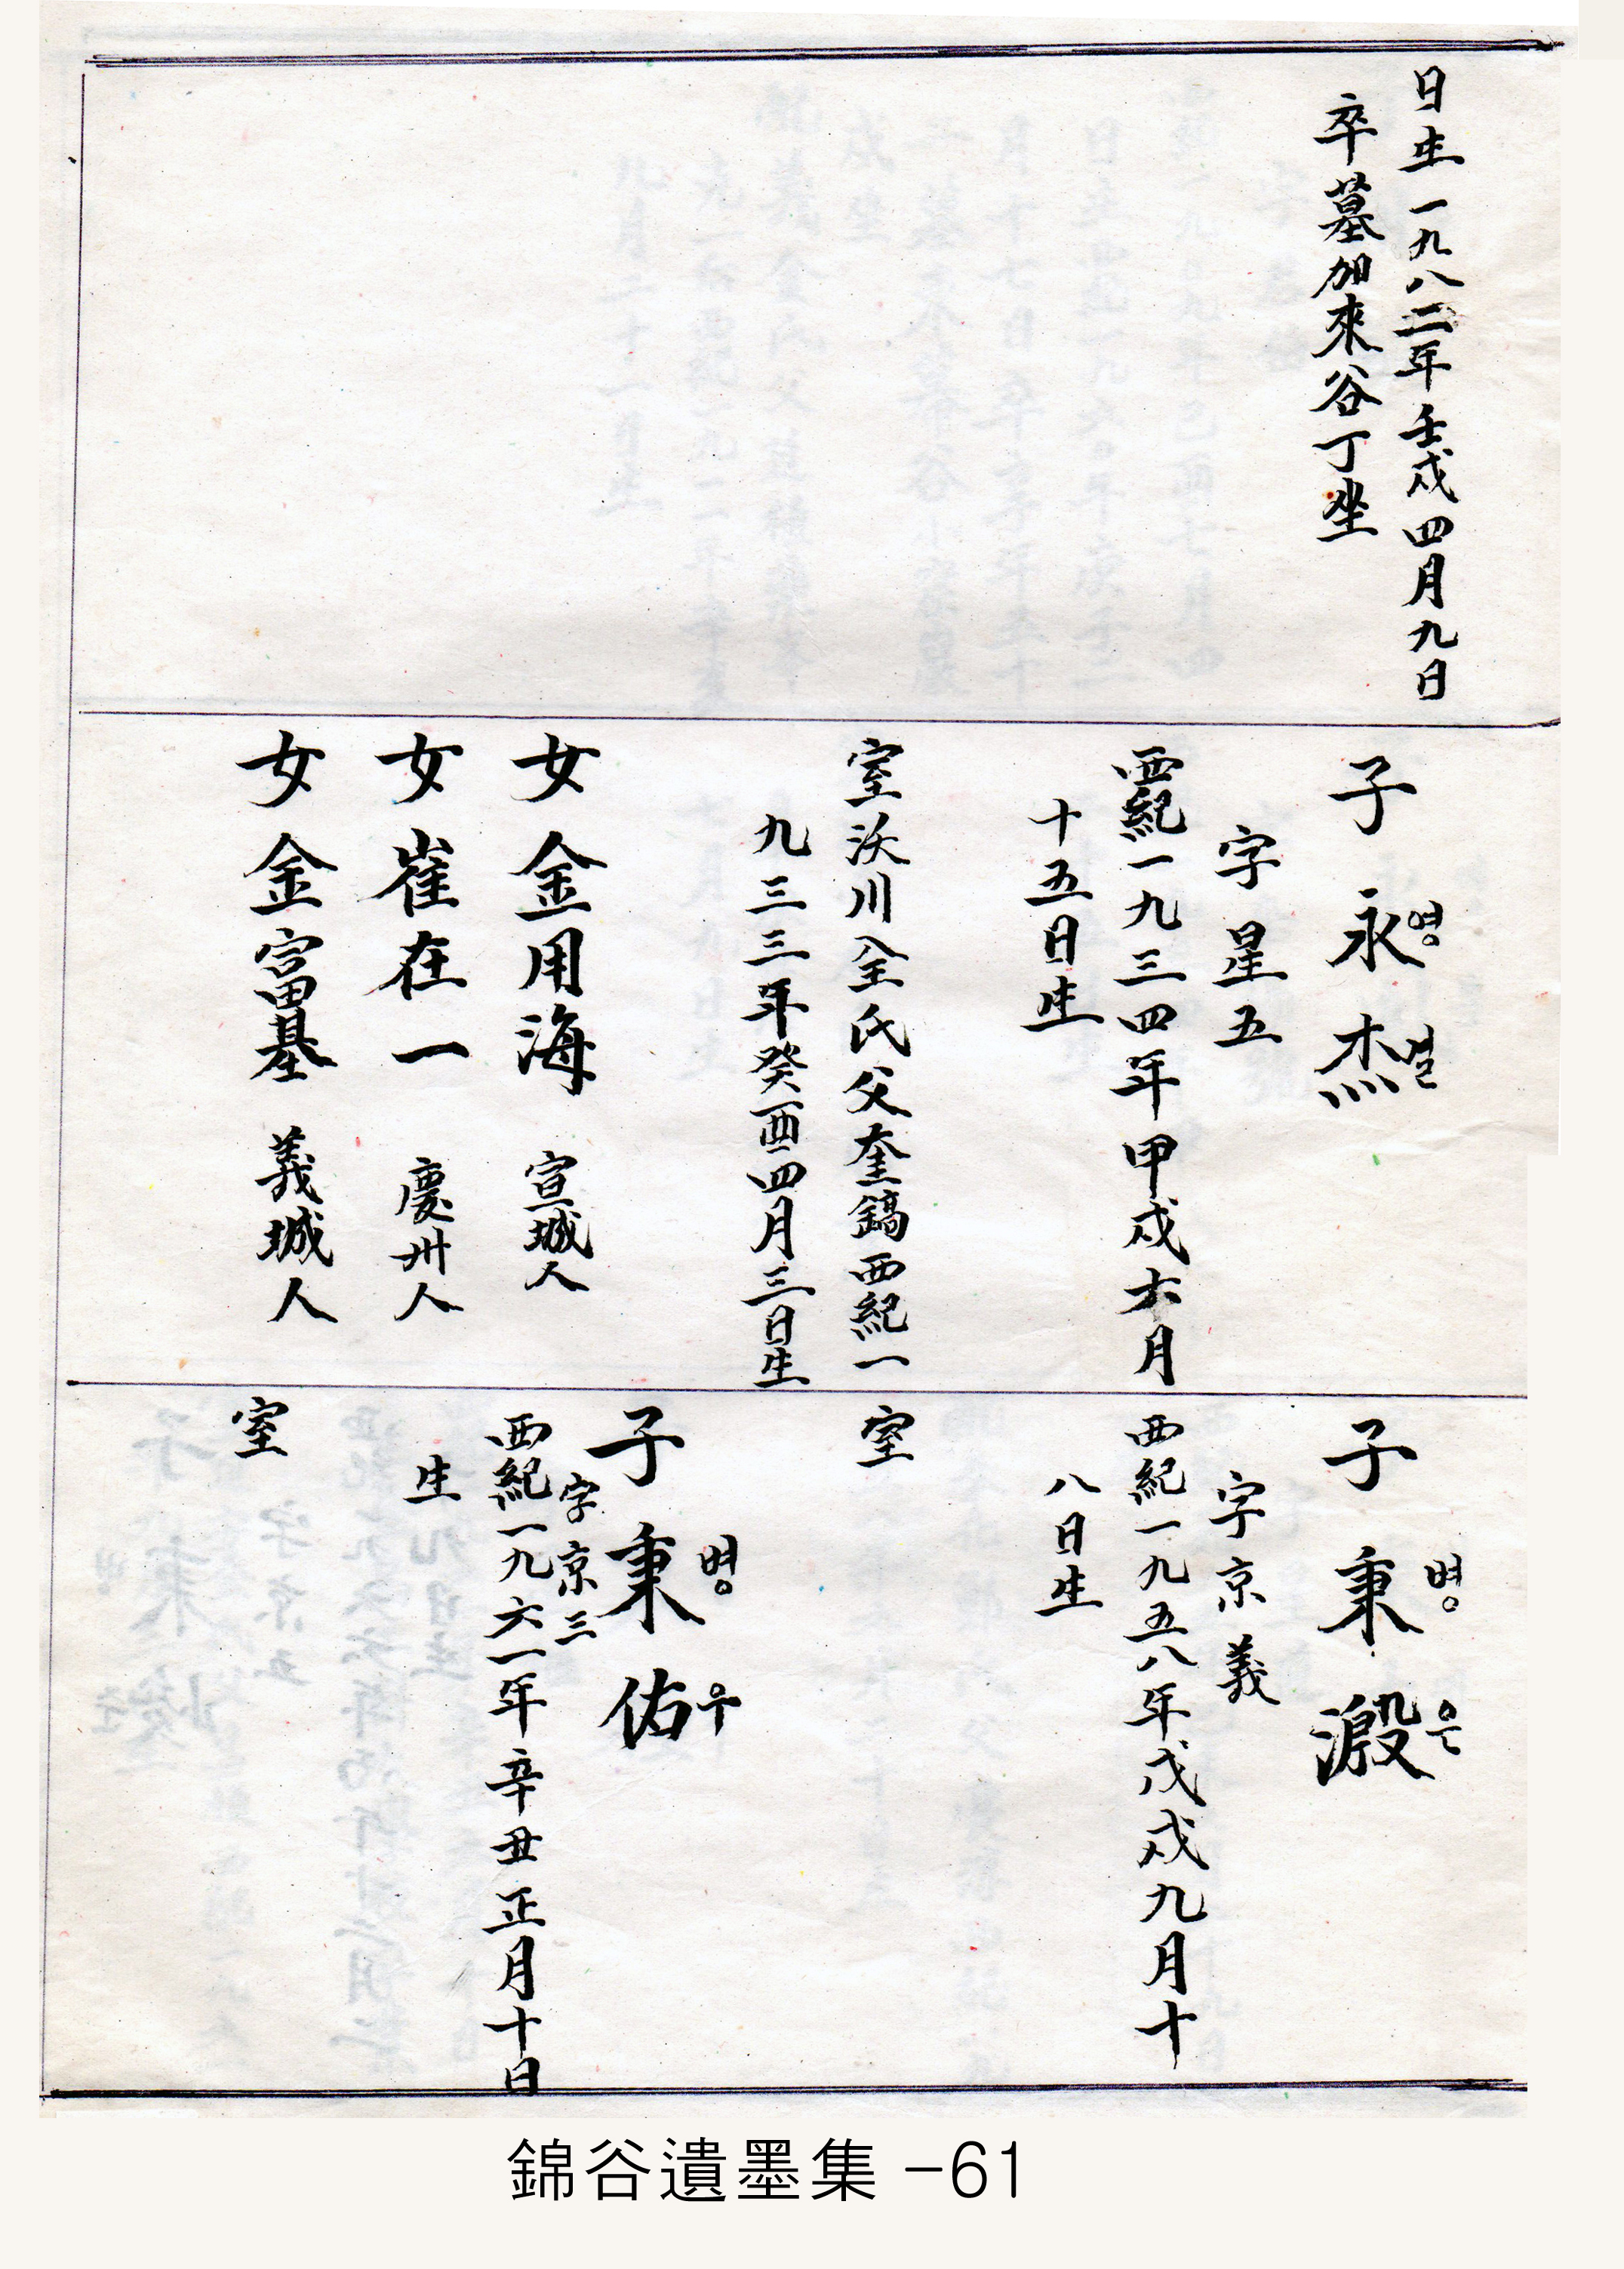 日生一九八二年壬戌四月九日
卒墓加來谷丁坐
子永영杰걸
字星五
西紀一九三四年甲戌六月
十五日生
室沃川全氏父奎鎬西紀一
九三三年癸酉四月三日生
女金用海 宣城人
女崔在一 慶州人
女金富基 義城人
子秉병濦은
字京義
西紀一九五八年戊戌九月十
八日生
室
子秉병佑우
字京三
西紀一九六一年辛丑正月十日
生
室
錦谷遺墨集 -61